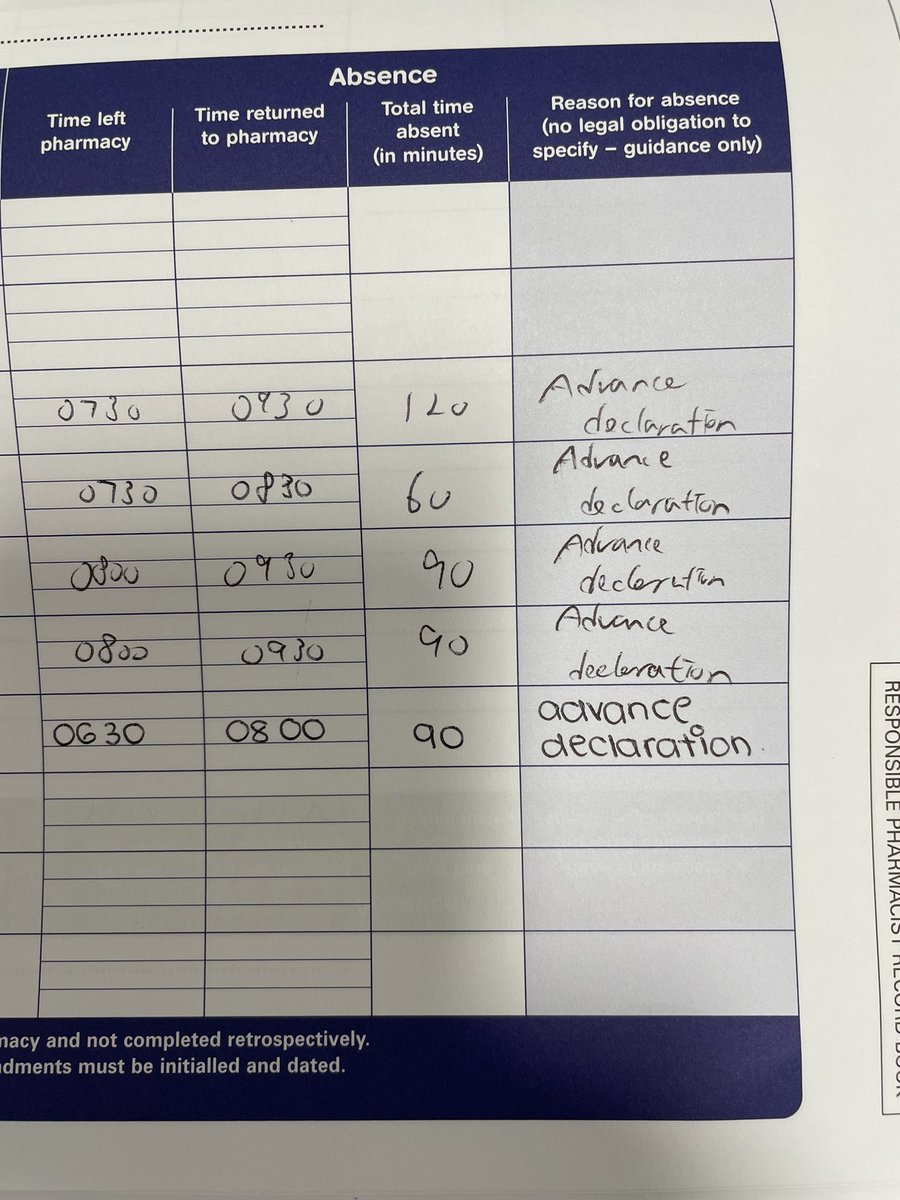 Absence
Time left
pharmacy
Time returned
to pharmacy
Total time
absent
(in minutes)
Reason for absence
(no legal obligation to
specify – guidance only)
0730 0930 120 Advance
declaration
0730 0830 60 Advance
declaration
0800 0930 90 Advance
decleration
0800 0930 90 Advance
decleration
0630 0800 90 advance
declaration.
macy and not completed retrospectively.
dments must be initialled and dated.
RESPONSIBLE PHARMACIST RECORD BOOK